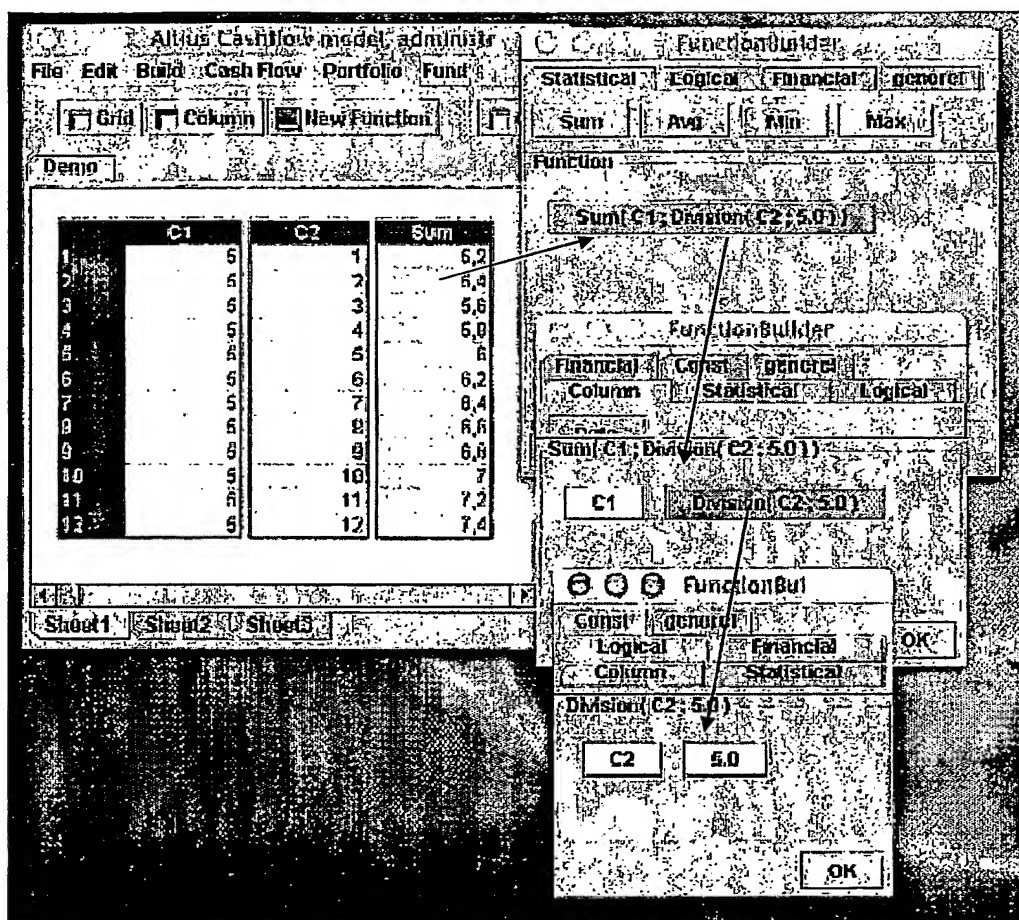 Altius Cashflow model, administr
File Edit Build Cash Flow Portfolio Fund
Grid Column New Function
Demo
C1 C2 Sum
1 5 1 5,2
2 5 2 5,4
3 5 3 5,6
4 5 4 5,8
5 5 5 6
6 5 6 6,2
7 5 7 6,4
8 5 8 6,6
9 5 9 6,8
10 5 10 7
11 5 11 7,2
12 5 12 7,4
Sheet1 Sheet2 Sheet3
FunctionBuilder
Statistical Logical Financial general
Sum Avg Min Max
Function
Sum( C1 ; Division( C2 ; 5.0 ) )
FunctionBuilder
Financial Const general
Column Statistical Logical
Sum( C1 ; Division( C2 ; 5.0 ) )
C1 Division( C2 ; 5.0 )
OK
FunctionBui
Const general
Logical Financial
Column Statistical
Division( C2 ; 5.0 )
C2 5.0
OK